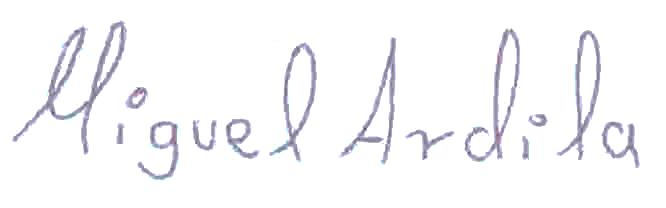 Miguel Ardila